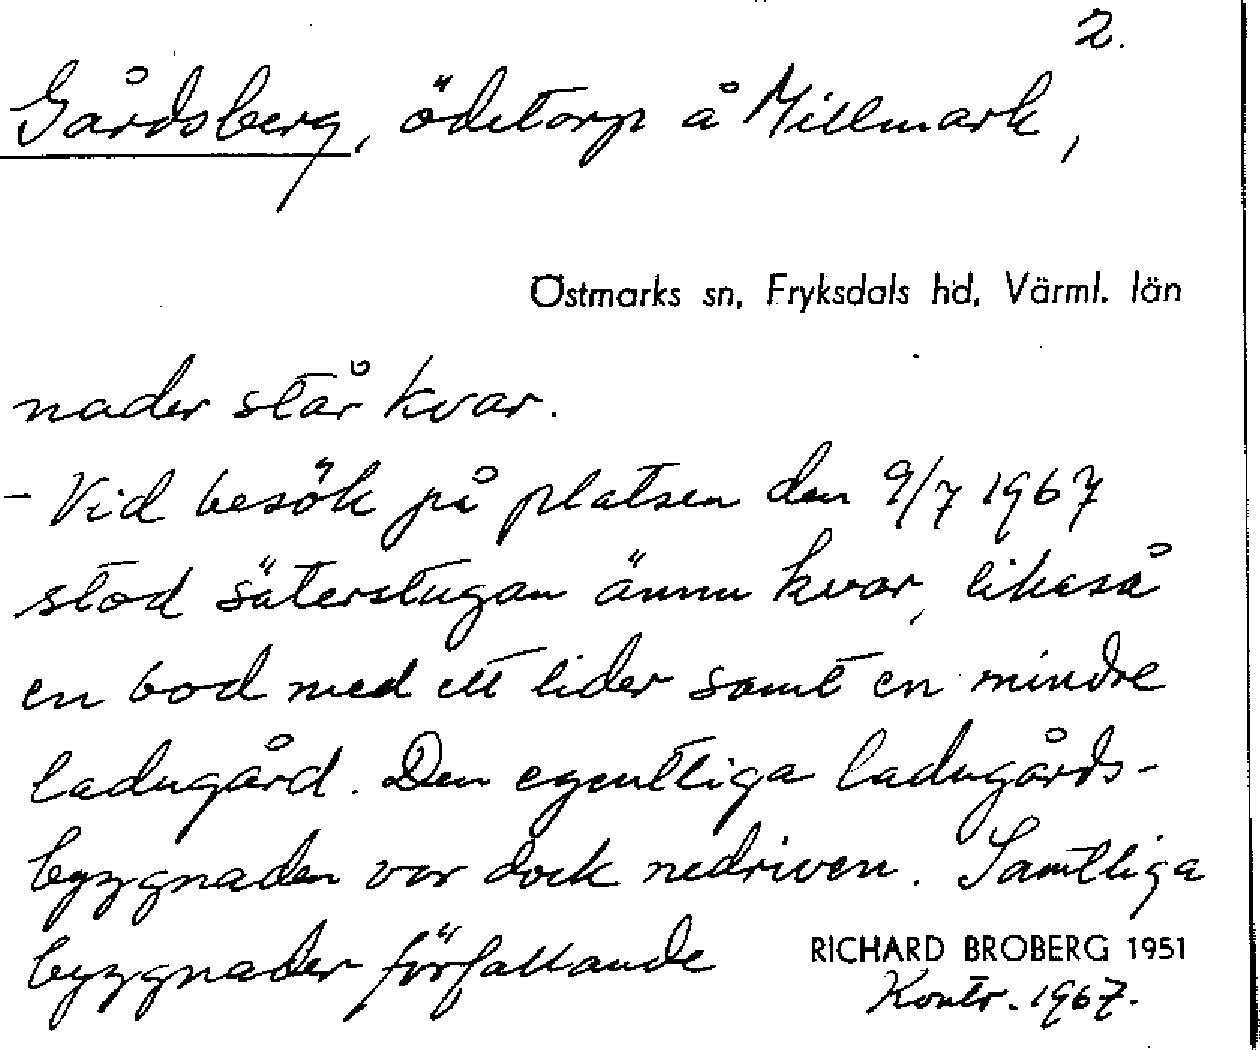 2.
Gårdsberg, ödetorp å Millmark,
Östmarks sn, Fryksdals hd, Värml. län
nader står kvar.
- Vid besök på platsen den 9/7 1967
stod säterstugan ännu kvar, likaså
en bod med ett lider samt en mindre
ladugård. Den egentliga ladugårds-
byggnaden var dock nedriven. Samtliga
byggnader förfallande
RICHARD BROBERG 1951
Kontr. 1967.